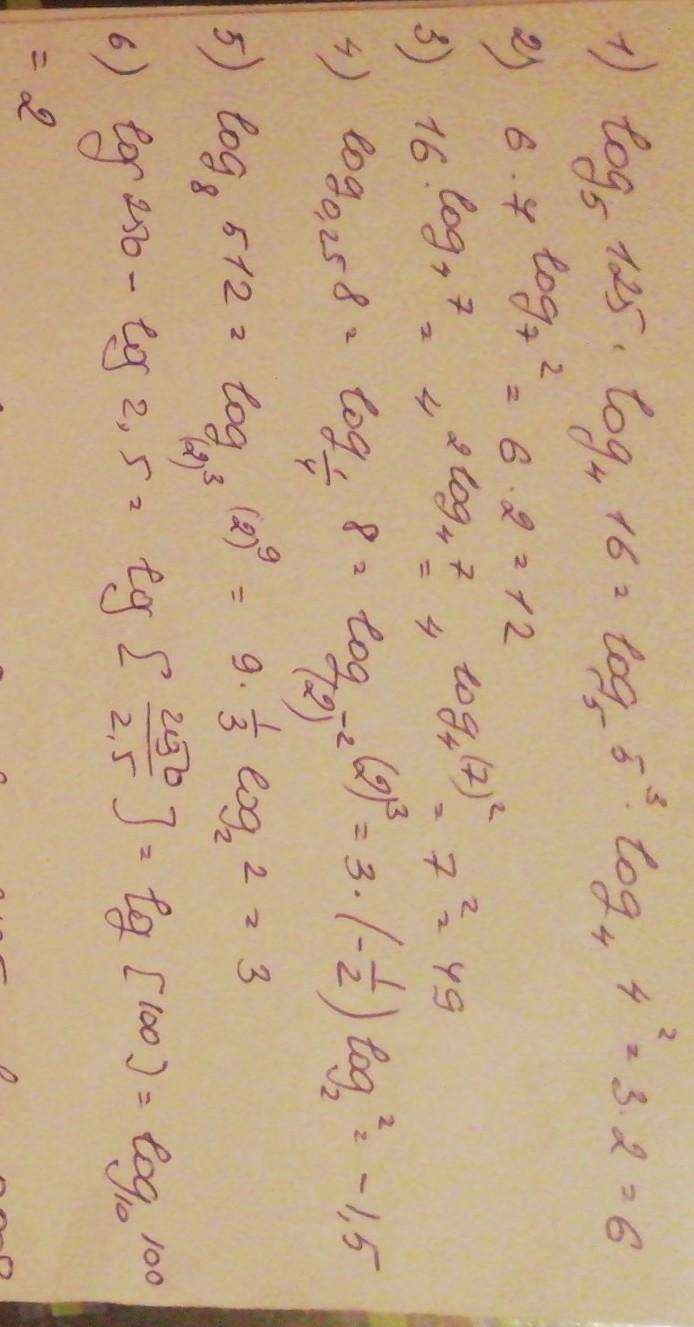 1) log₅ 125 · log₄ 16 = log₅ 5³ · log₄ 4² = 3·2 = 6
2) 6 · 7 log₇ 2 = 6 · 2 = 12
3) 16 · log₄ 7 = 4 2log₄ 7 = 4 log₄ (7)² = 7² = 49
4) log₀,₂₅ 8 = log_{1/4} 8 = log_{(2)⁻²} (2)³ = 3 · (-1/2) log₂ 2 = -1,5
5) log₈ 512 = log_{(2)³} (2)⁹ = 9 · 1/3 log₂ 2 = 3
6) lg 250 - lg 2,5 = lg [250/2,5] = lg [100] = log₁₀ 100
= 2